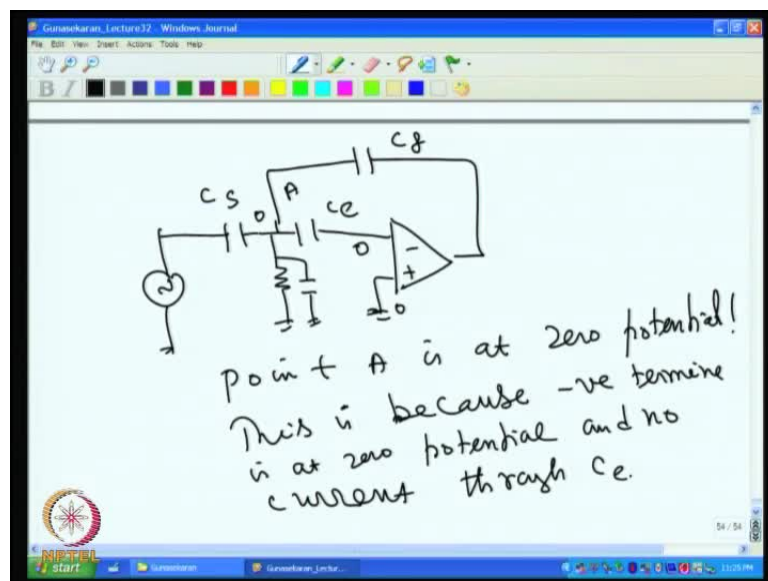 Gunasekaran_Lecture32 - Windows Journal
File Edit View Insert Actions Tools Help
B I
Cf
A
Cs
0
Ce
0
-
+
0
Point A is at zero potential!
This is because -ve termine
is at zero potential and no
current through Ce.
54 / 54
NPTEL
start
Gunasekaran
Gunasekaran_Lectur...
11:25 PM